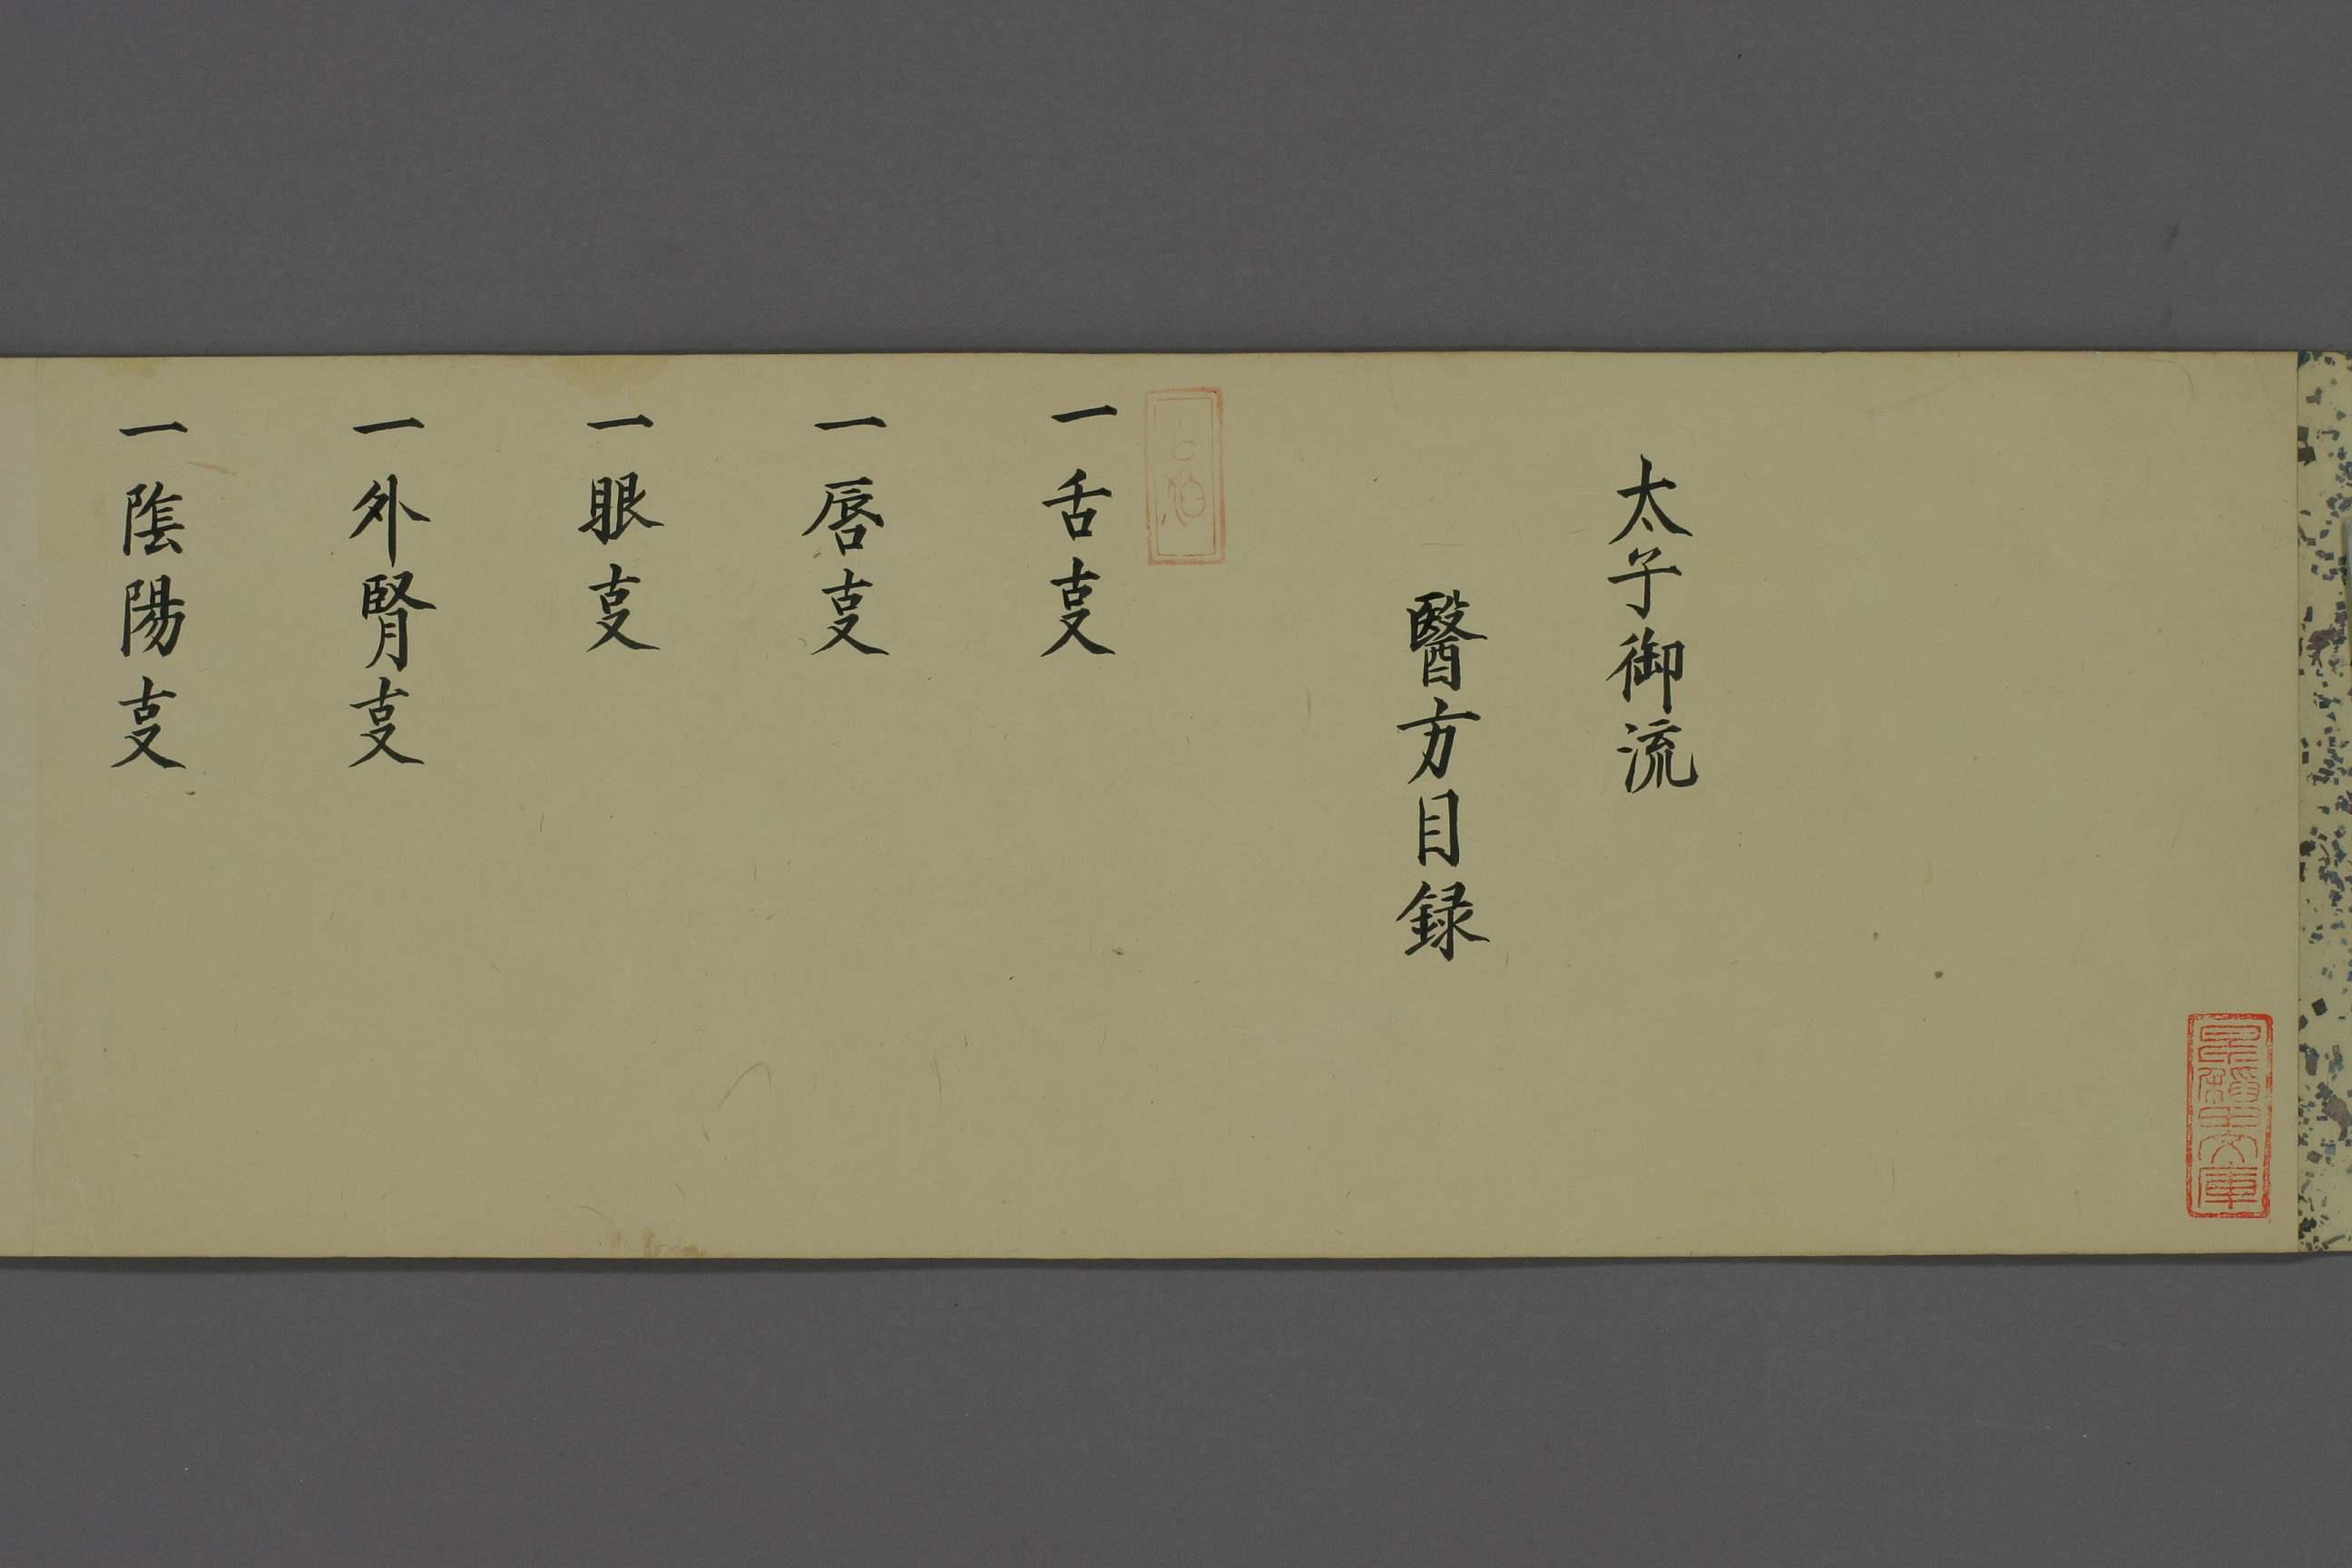 太子御流
醫方目録
一舌㕝
一唇㕝
一眼㕝
一外腎㕝
一陰陽㕝